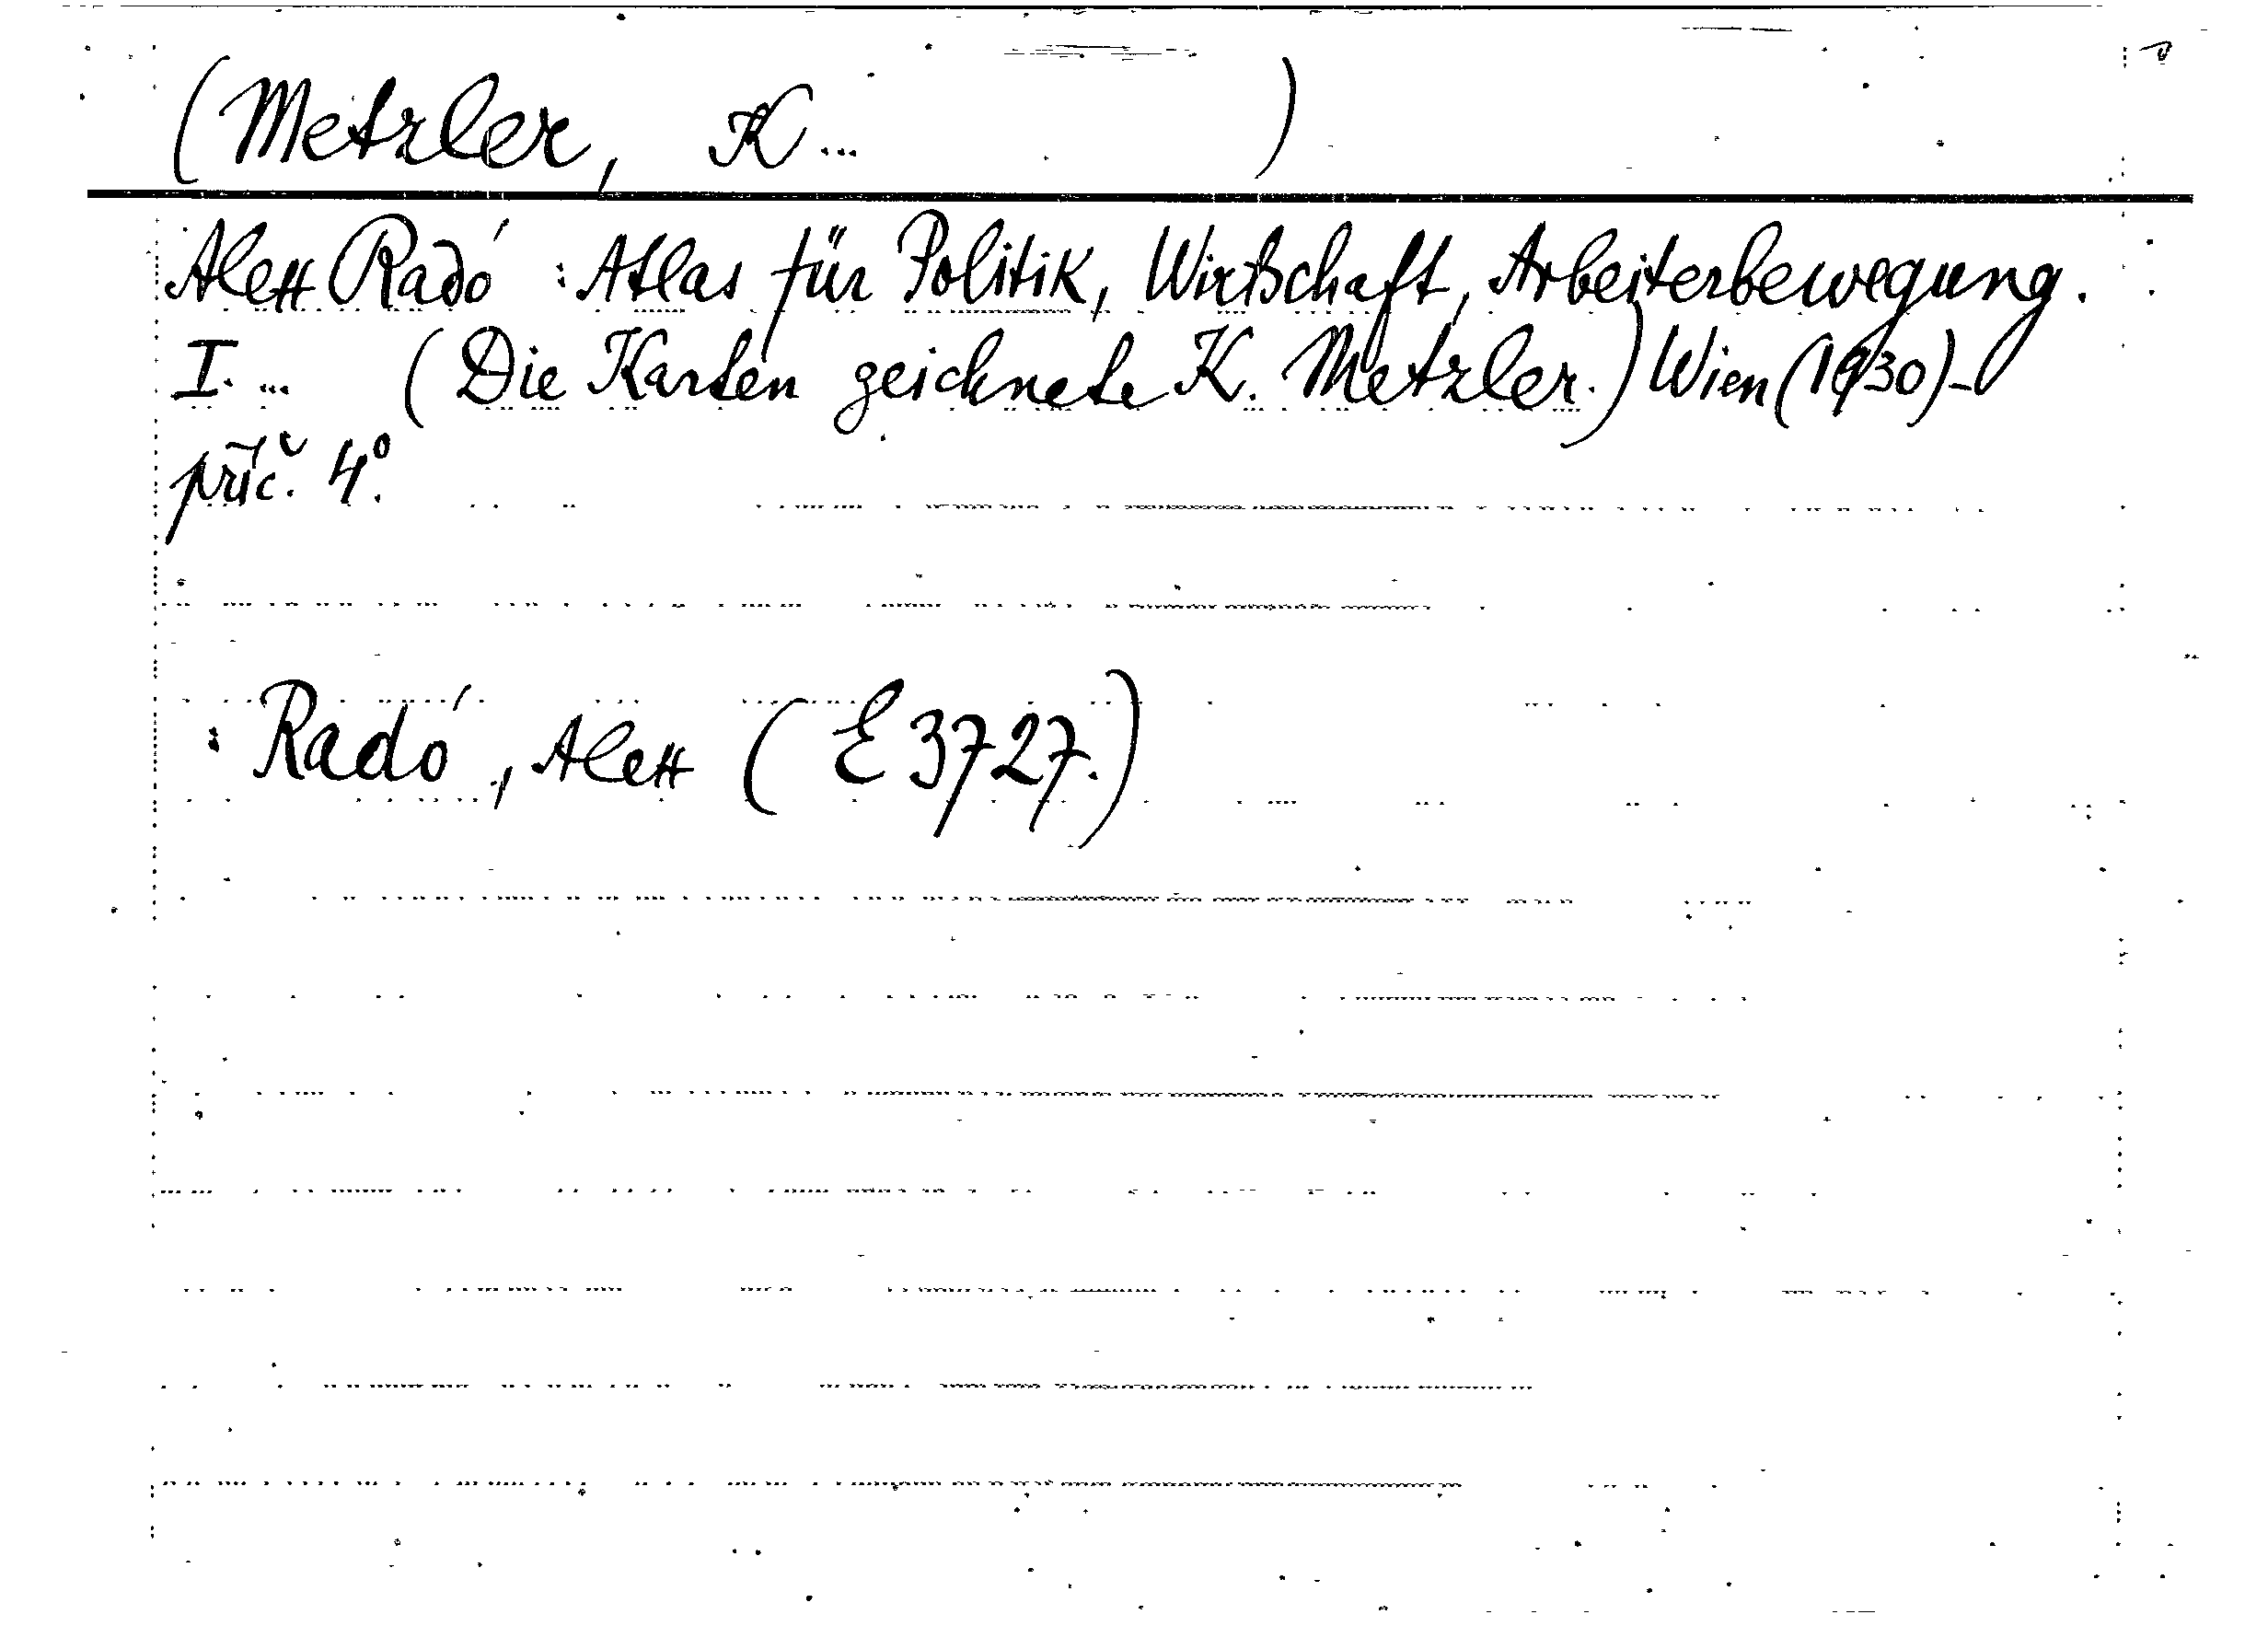 (Metzler, K... )
Alex Radó : Atlas für Politik, Wirtschaft, Arbeiterbewegung.
I. ... (Die Karten zeichnete K. Metzler.) Wien (1930)-
příč. 4°.
: Radó, Alex (E 3727.)